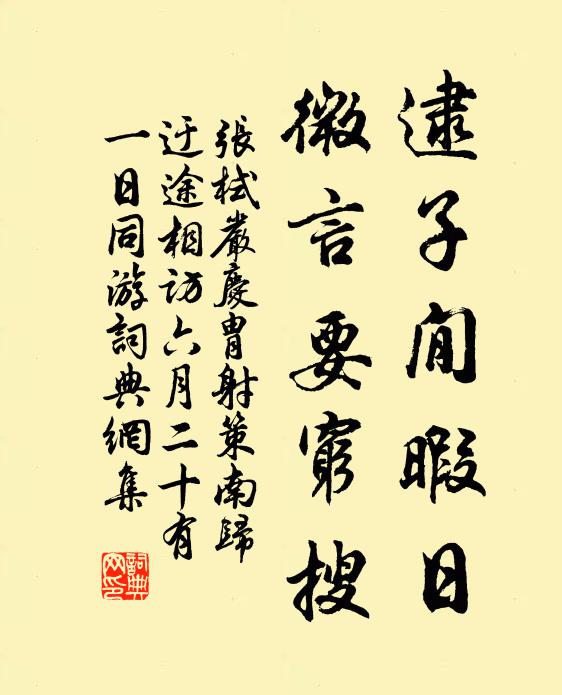 逮子閒暇日
微言要窮搜
張栻嚴慶胄射策南歸
迂途相訪六月二十有
一日同游詞典網集
詞典
网印